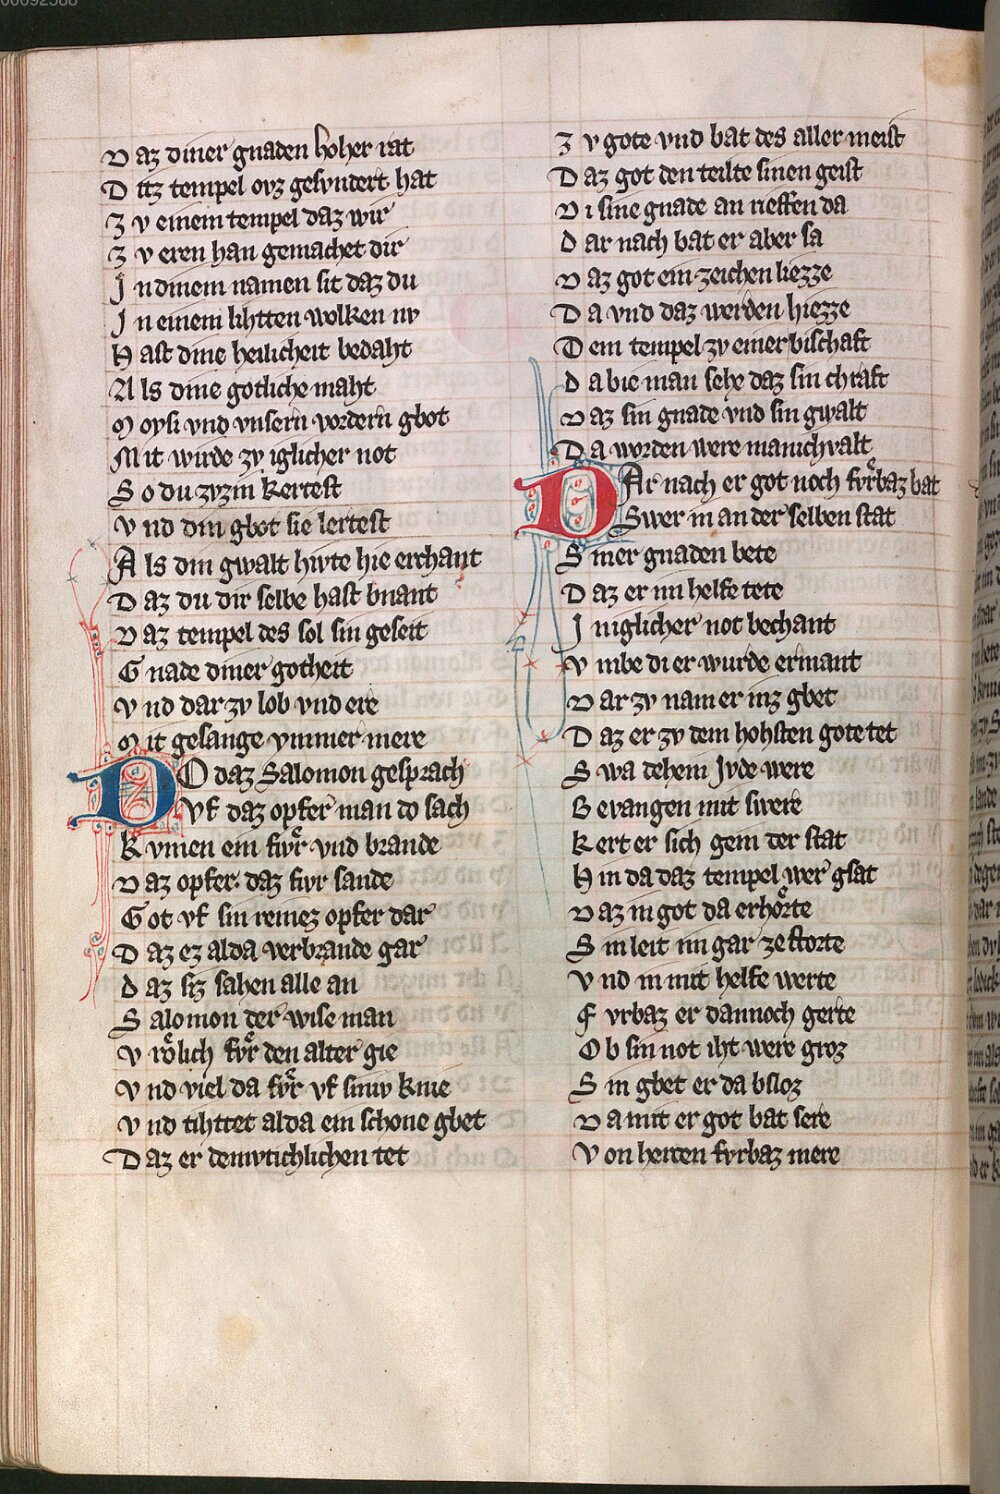 00092588
Daz diner gnaden hoher rat
Ditz tempel ovz gesvndert hat
Zv einem tempel daz wir
Zv eren han gemachet dir
In dinem namen sit daz du
In einem lihtten wolken nv
Hast dine heilicheit bedaht
Als dine gotliche maht
Moysi vnd vnsern vordern gbot
Mit wirde zv iglicher not
So du zvzin kertest
Vnd din gbot sie lertest
Als din gwalt hivte hie erchant
Daz du dir selbe hast bnant
Daz tempel des sol sin geseit
Gnade diner gotheit
Vnd dar zv lob vnd ere
Mit gesange ymmer mere
DO daz Salomon gesprach
Vf daz opfer man do sach
Kvmen ein fivr vnd brande
Daz opfer. daz fivr sande
Got vf sin reinez opfer dar
Daz ez alda verbrande gar
Daz siz sahen alle an
Salomon der wise man
Vrölich fvͤr den alter gie
Vnd viel da fvͤr vf siniv knie
Vnd tihttet alda ein schone gbet
Daz er demvtichlichen tet
Zv gote vnd bat des aller meist
Daz got den teilte sinen geist
Di sine gnade an rieffen da
Dar nach bat er aber sa
Daz got ein zeichen liezze
Da vnd daz werden hiezze
Dem tempel zv einer bischaft
Da bie man sehe daz sin chraft
Daz sin gnade vnd sin gwalt
Da worden were manichvalt
DAr nach er got noch fvͤrbaz bat
Swer in an der selben stat
Siner gnaden bete
Daz er im helfe tete
In iglicher not bechant
Vmbe di er wurde ermant
Dar zv nam er inz gbet
Daz er zv dem hohsten gote tet
Swa dehein Jvde were
Gevangen mit swere
Kert er sich gein der stat
Hin da daz tempel wer gsat
Daz in got da erhörte
Sin leit im gar zestorte
Vnd in mit helfe werte
Fvrbaz er dannoch gerte
Ob sin not iht were groz
Sin gbet er da bsloz
Da mit er got bat sere
Von herten fvrbaz mere